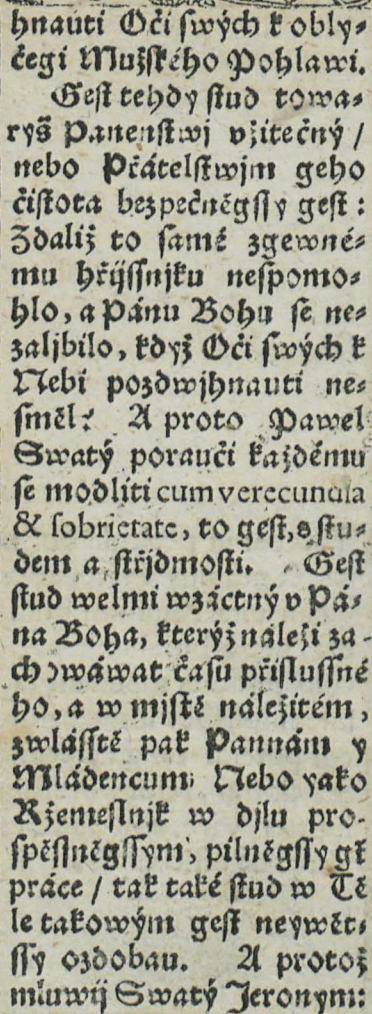 hnauti Oči swých k obly⸗
čegi Mužského Pohlawi.
Gest tehdy stud towa⸗
ryš Panenstwj vžitečný /
nebo Přátelstwjm geho
čistota bezpečněgssy gest:
Zdaliž to samé zgewné⸗
mu hřjssnjku nespomo⸗
hlo, a Pánu Bohu se ne⸗
zaljbilo, kdyź Oči swých k
Nebi pozdwjhnauti ne⸗
směl? A proto Pawel
Swatý poraučí každému
se modliti cum verecundia
& sobrietate, to gest, s stu⸗
dem a střjdmosti. Gest
stud welmi wzáctný v Pá⸗
na Boha, kterýž náleži za-
chowáwat času přislussné
ho, a w mjstě náležitém,
zwlásstě pak Pannám y
Mládencum: Nebo yako
Ržemeslnjk w djlu pro-
spěssněgssym, pilněgssy gt
práce / tak také stud w Tě
le takowým gest neywět⸗
ssy ozdobau. A protož
mluwij Swatý Jeronym: